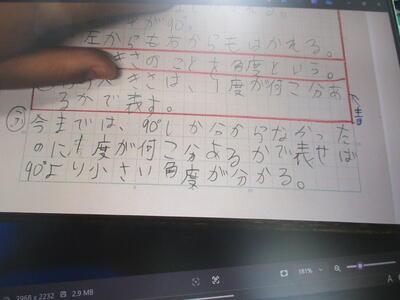 が90°。
左からも右からもはかれる。
きさのことを角度という。
きさは、1度が何こ分あ
るかで表す。
今までは、90°しか分からなかった
のに1度が何こ分あるかで表せば
90°より小さい角度が分かる。
3968 x 2232
2.9 MB
181%